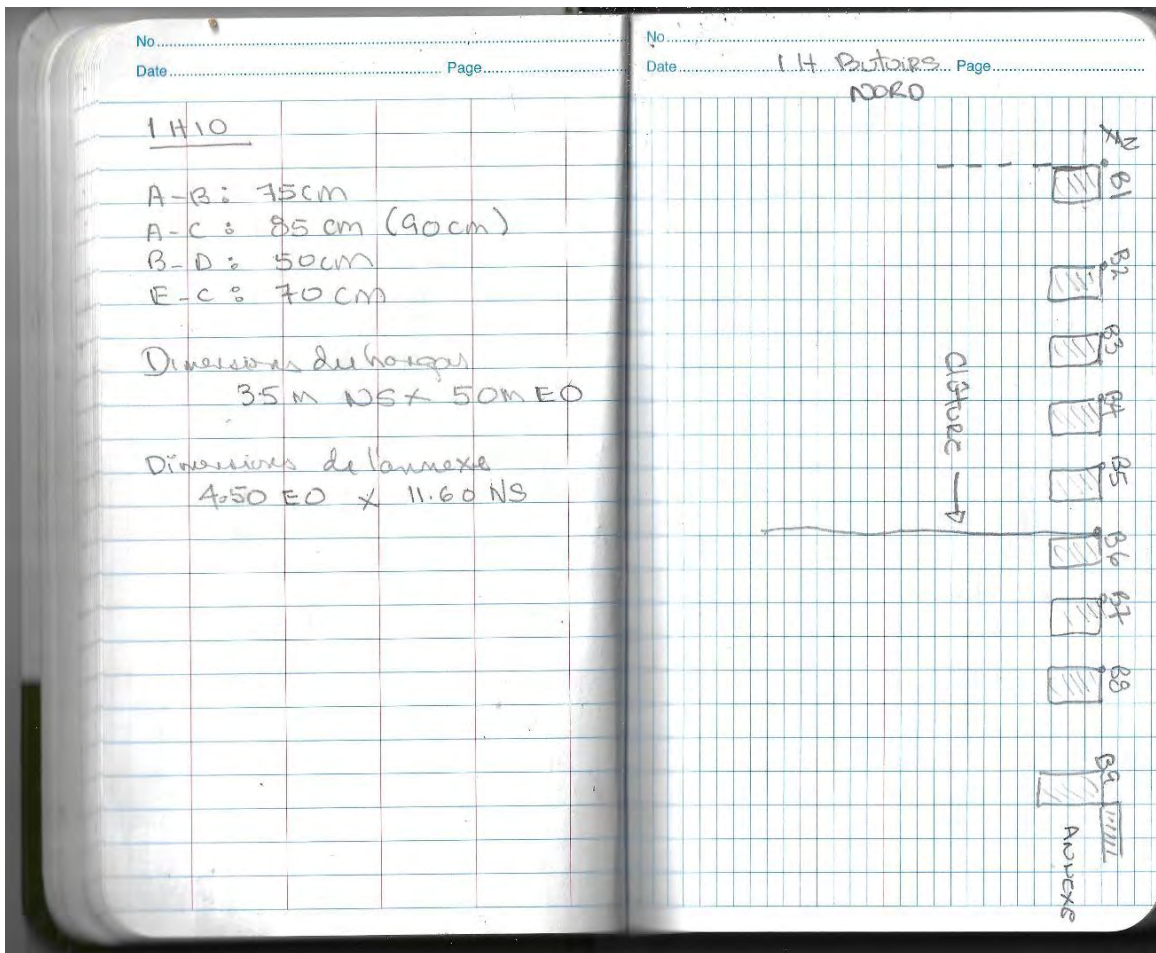 No.
Date Page
1H10
A-B: 75cm
A-C: 85 cm (90cm)
B-D: 50cm
E-C: 70 cm
Dimensions du hangar
35 m NS x 50m EO
Dimensions de l'annexe
4.50 EO x 11.60 NS
No.
Date 1H Butoirs Page
NORD
N
B1
B2
B3
B4
B5
Clôture
B6
B7
B8
B9
ANNEXE